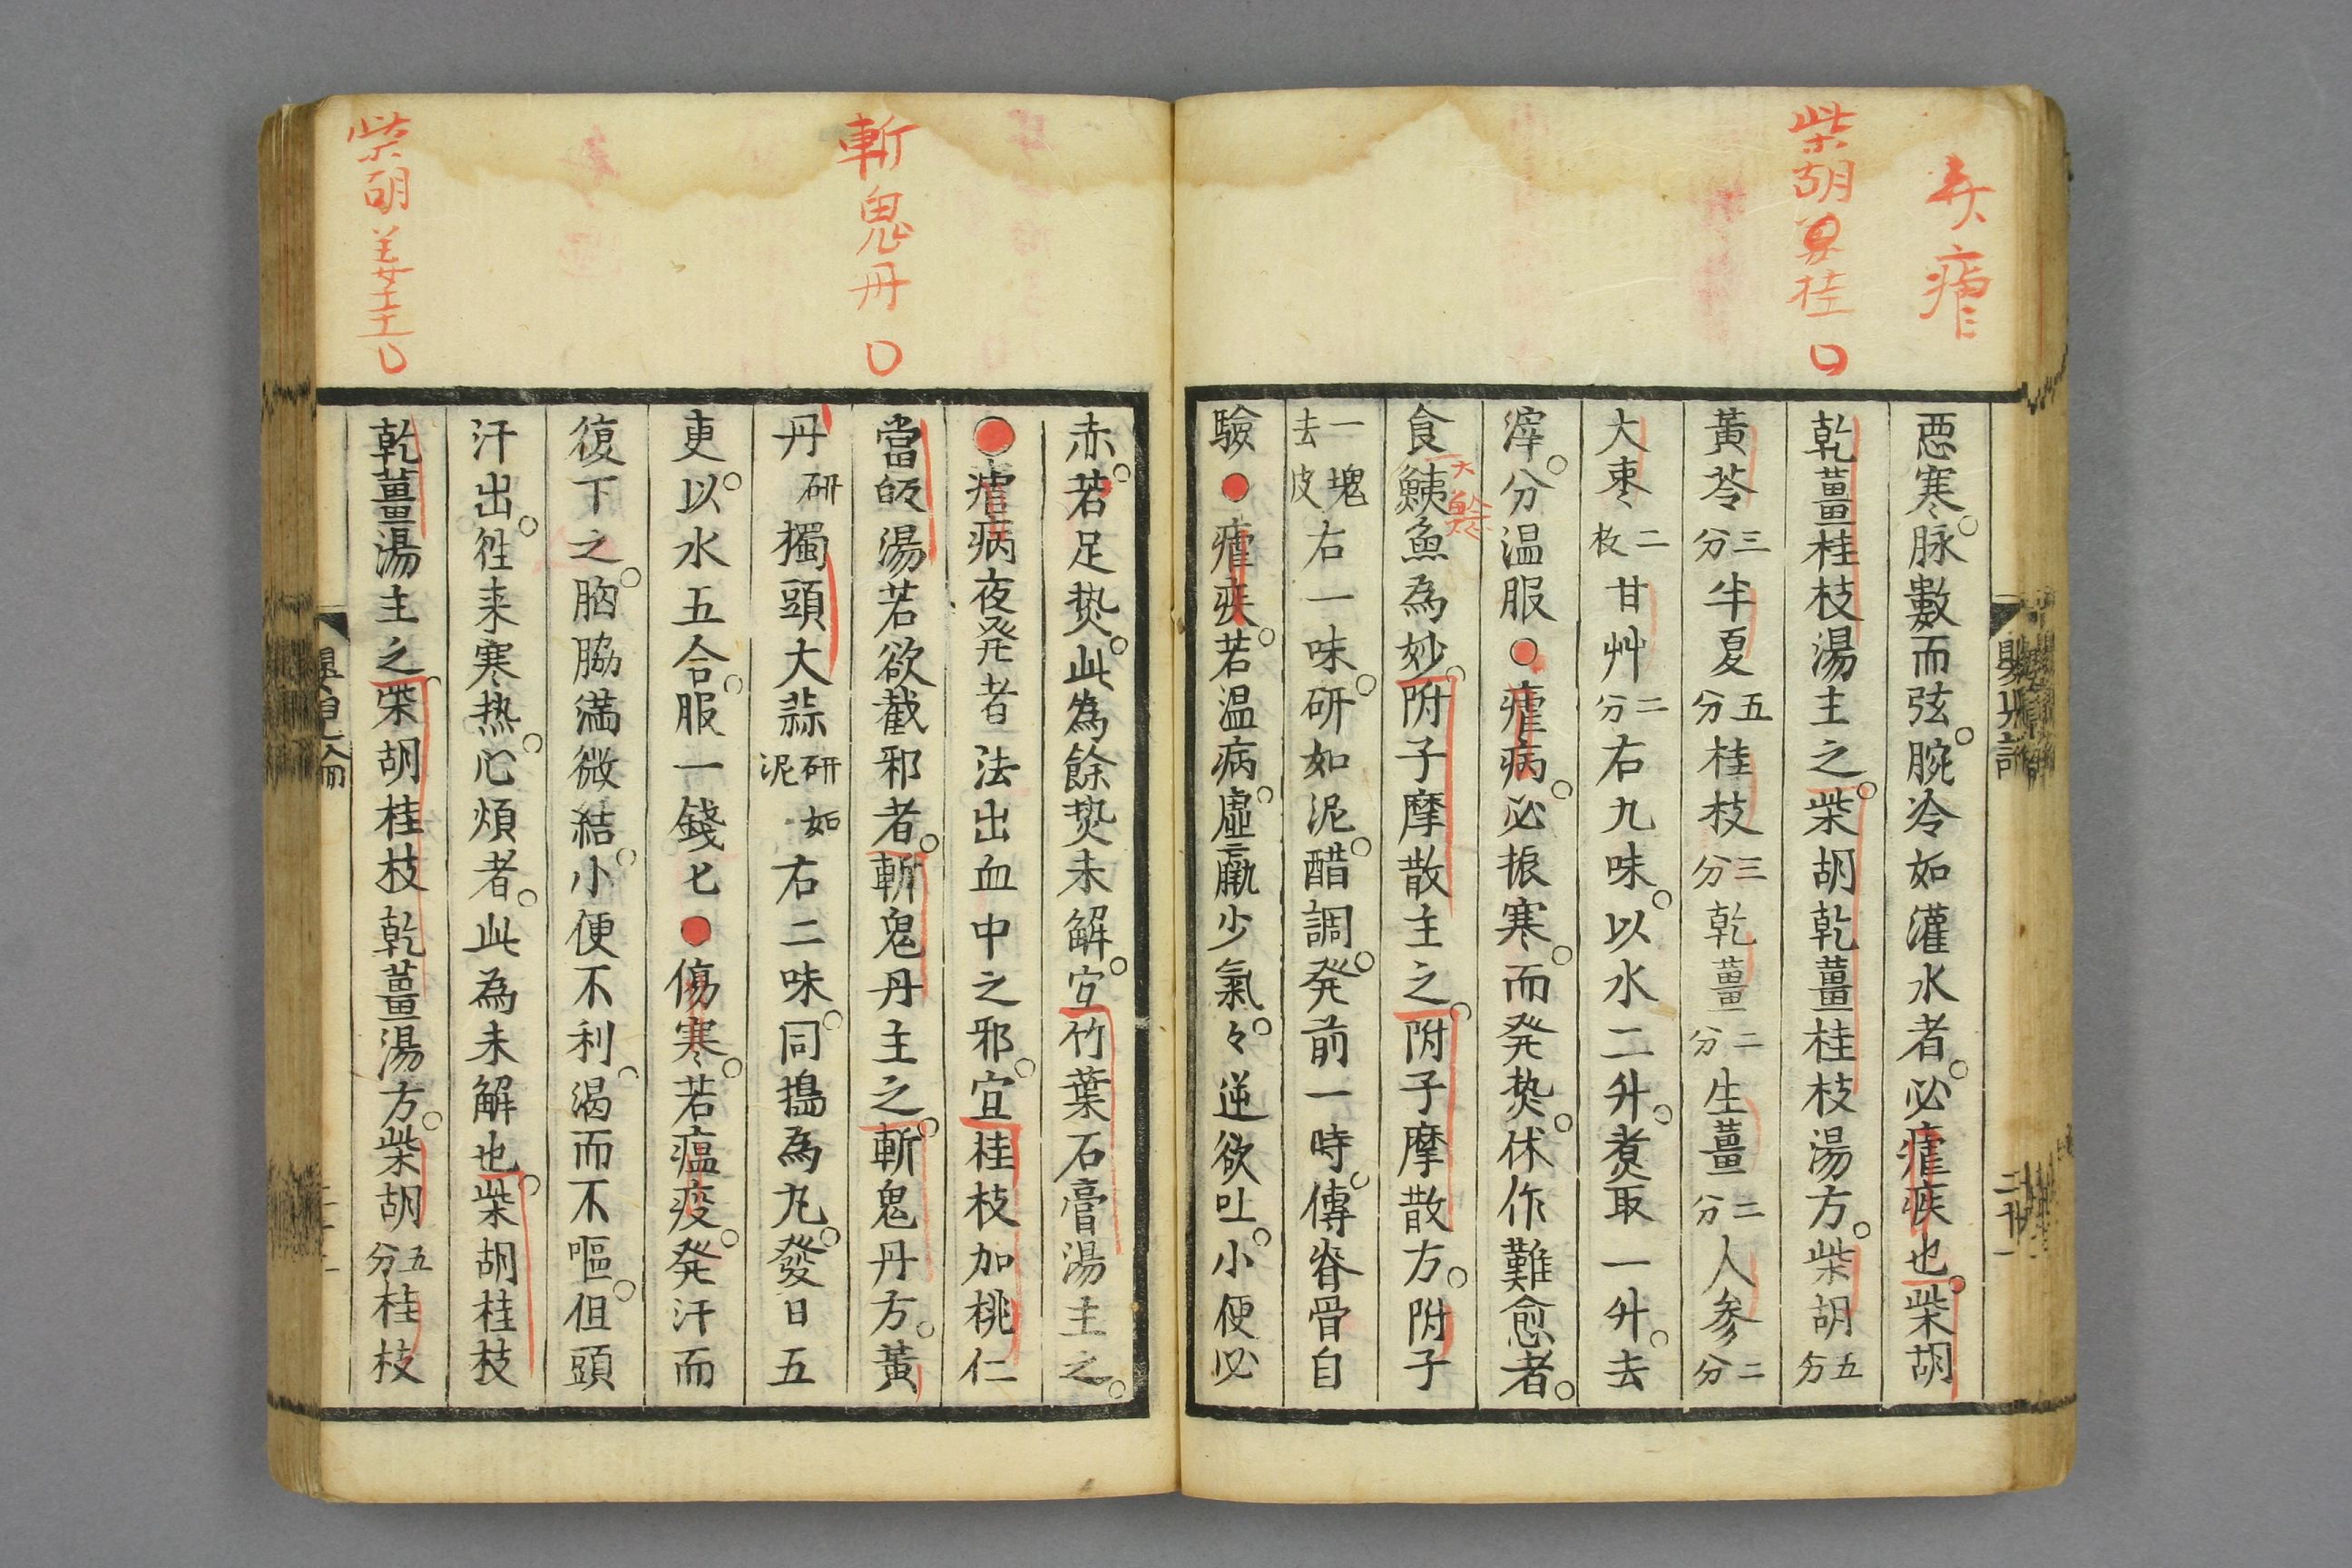 柴胡桂
惡寒脉數而弦腕冷如灌水者必瘧疾也柴胡
乾薑桂枝湯主之柴胡乾薑桂枝湯方柴胡五分
黃芩三分半夏五分桂枝三分乾薑二分生薑二分人参二分
大枣二枚甘艸二分右九味以水二升煑取一升去
滓分温服瘧病必振寒而発𤍠伏作難愈者
食鮧魚為妙附子摩散主之附子摩散方附子
一塊去皮右一味研如泥醋調発前一時傅脊骨自
驗瘧疾若温病虛羸少氣々逆欲吐小便必
斬鬼丹
柴胡姜
赤若足𤍠此為餘𤍠未解宜竹葉石膏湯主之
瘧病夜発者法出血中之邪宜桂枝加桃仁
當皈湯若欲截邪者斬鬼丹主之斬鬼丹方黃
丹研獨頭大蒜研如泥右二味同搗為丸發日五
更以水五合服一錢匕傷寒若瘟疫発汗而
復下之胸脇滿微結小便不利渴而不嘔但頭
汗出徃来寒热心煩者此為未解也柴胡桂枝
乾薑湯主之柴胡桂枝乾薑湯方柴胡五分桂枝